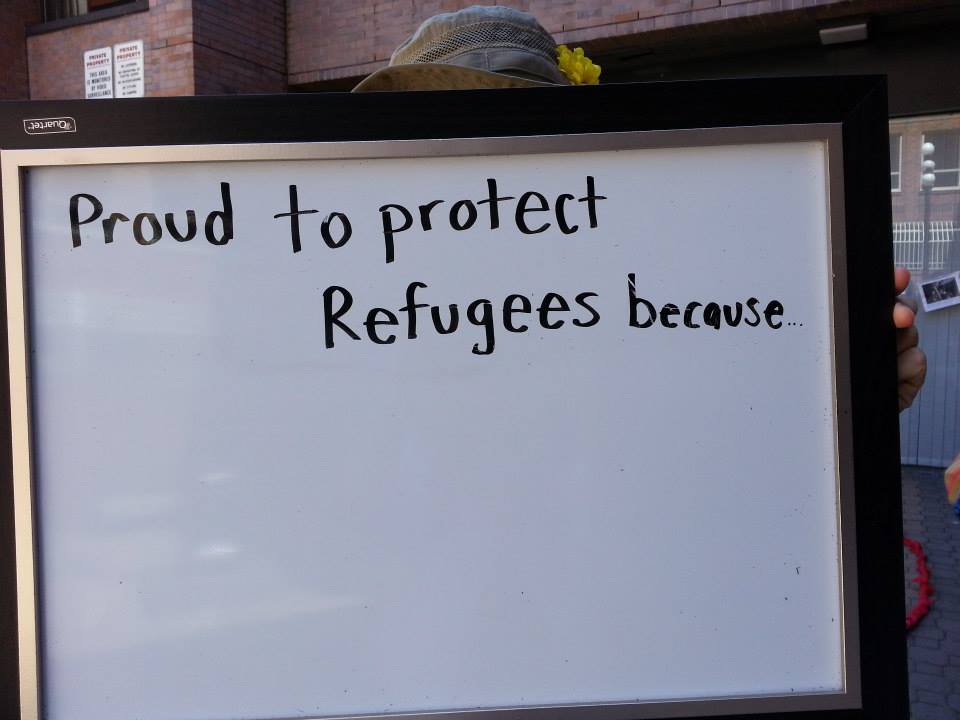 Quartet
PRIVATE PROPERTY
THIS AREA
IS MONITORED
BY VIDEO
SURVEILLANCE
PRIVATE PROPERTY
Proud to protect
Refugees because...